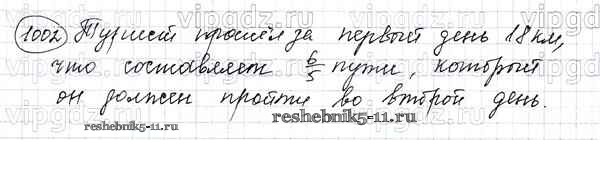 1002 Турист прошёл за первый день 18 км,
что составляет 6/5 пути, который
он должен пройти во второй день.
reshebnik5-11.ru
reshebnik5-11.ru